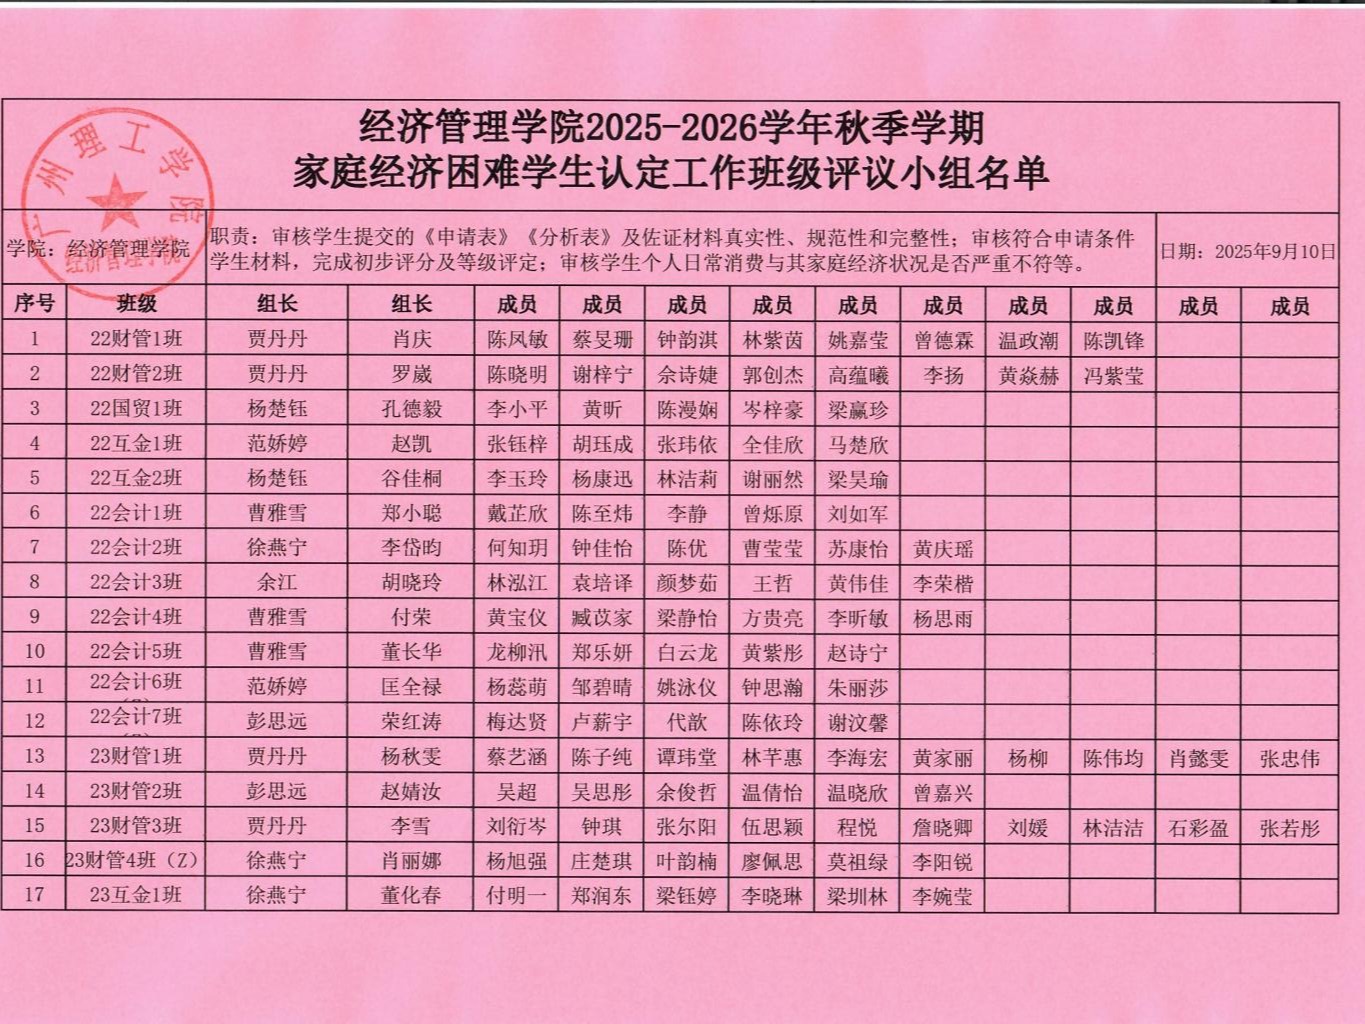 经济管理学院2025-2026学年秋季学期
家庭经济困难学生认定工作班级评议小组名单
广州理工学院
经济管理学院
学院：经济管理学院
职责：审核学生提交的《申请表》《分析表》及佐证材料真实性、规范性和完整性；审核符合申请条件
学生材料，完成初步评分及等级评定；审核学生个人日常消费与其家庭经济状况是否严重不符等。
日期：2025年9月10日
序号 班级 组长 组长 成员 成员 成员 成员 成员 成员 成员 成员 成员 成员
1 22财管1班 贾丹丹 肖庆 陈凤敏 蔡旻珊 钟韵淇 林紫茵 姚嘉莹 曾德霖 温政潮 陈凯锋
2 22财管2班 贾丹丹 罗崴 陈晓明 谢梓宁 佘诗婕 郭创杰 高蕴曦 李扬 黄焱赫 冯紫莹
3 22国贸1班 杨楚钰 孔德毅 李小平 黄昕 陈漫娴 岑梓豪 梁赢珍
4 22互金1班 范娇婷 赵凯 张钰梓 胡珏成 张玮依 全佳欣 马楚欣
5 22互金2班 杨楚钰 谷佳桐 李玉玲 杨康迅 林洁莉 谢丽然 梁昊瑜
6 22会计1班 曹雅雪 郑小聪 戴芷欣 陈至炜 李静 曾烁原 刘如军
7 22会计2班 徐燕宁 李岱昀 何知玥 钟佳怡 陈优 曹莹莹 苏康怡 黄庆瑶
8 22会计3班 余江 胡晓玲 林泓江 袁培译 颜梦茹 王哲 黄伟佳 李荣楷
9 22会计4班 曹雅雪 付荣 黄宝仪 臧苡家 梁静怡 方贵亮 李昕敏 杨思雨
10 22会计5班 曹雅雪 董长华 龙柳汛 郑乐妍 白云龙 黄紫彤 赵诗宁
11 22会计6班 范娇婷 匡全禄 杨蕊萌 邹碧晴 姚泳仪 钟思瀚 朱丽莎
12 22会计7班 彭思远 荣红涛 梅达贤 卢薪宇 代歆 陈依玲 谢汶馨
13 23财管1班 贾丹丹 杨秋雯 蔡艺涵 陈子纯 谭玮堂 林芊惠 李海宏 黄家丽 杨柳 陈伟均 肖懿雯 张忠伟
14 23财管2班 彭思远 赵婧汝 吴超 吴思彤 余俊哲 温倩怡 温晓欣 曾嘉兴
15 23财管3班 贾丹丹 李雪 刘衍岑 钟琪 张尔阳 伍思颖 程悦 詹晓卿 刘媛 林洁洁 石彩盈 张若彤
16 23财管4班（Z） 徐燕宁 肖丽娜 杨旭强 庄楚琪 叶韵楠 廖佩思 莫祖绿 李阳锐
17 23互金1班 徐燕宁 董化春 付明一 郑润东 梁钰婷 李晓琳 梁圳林 李婉莹